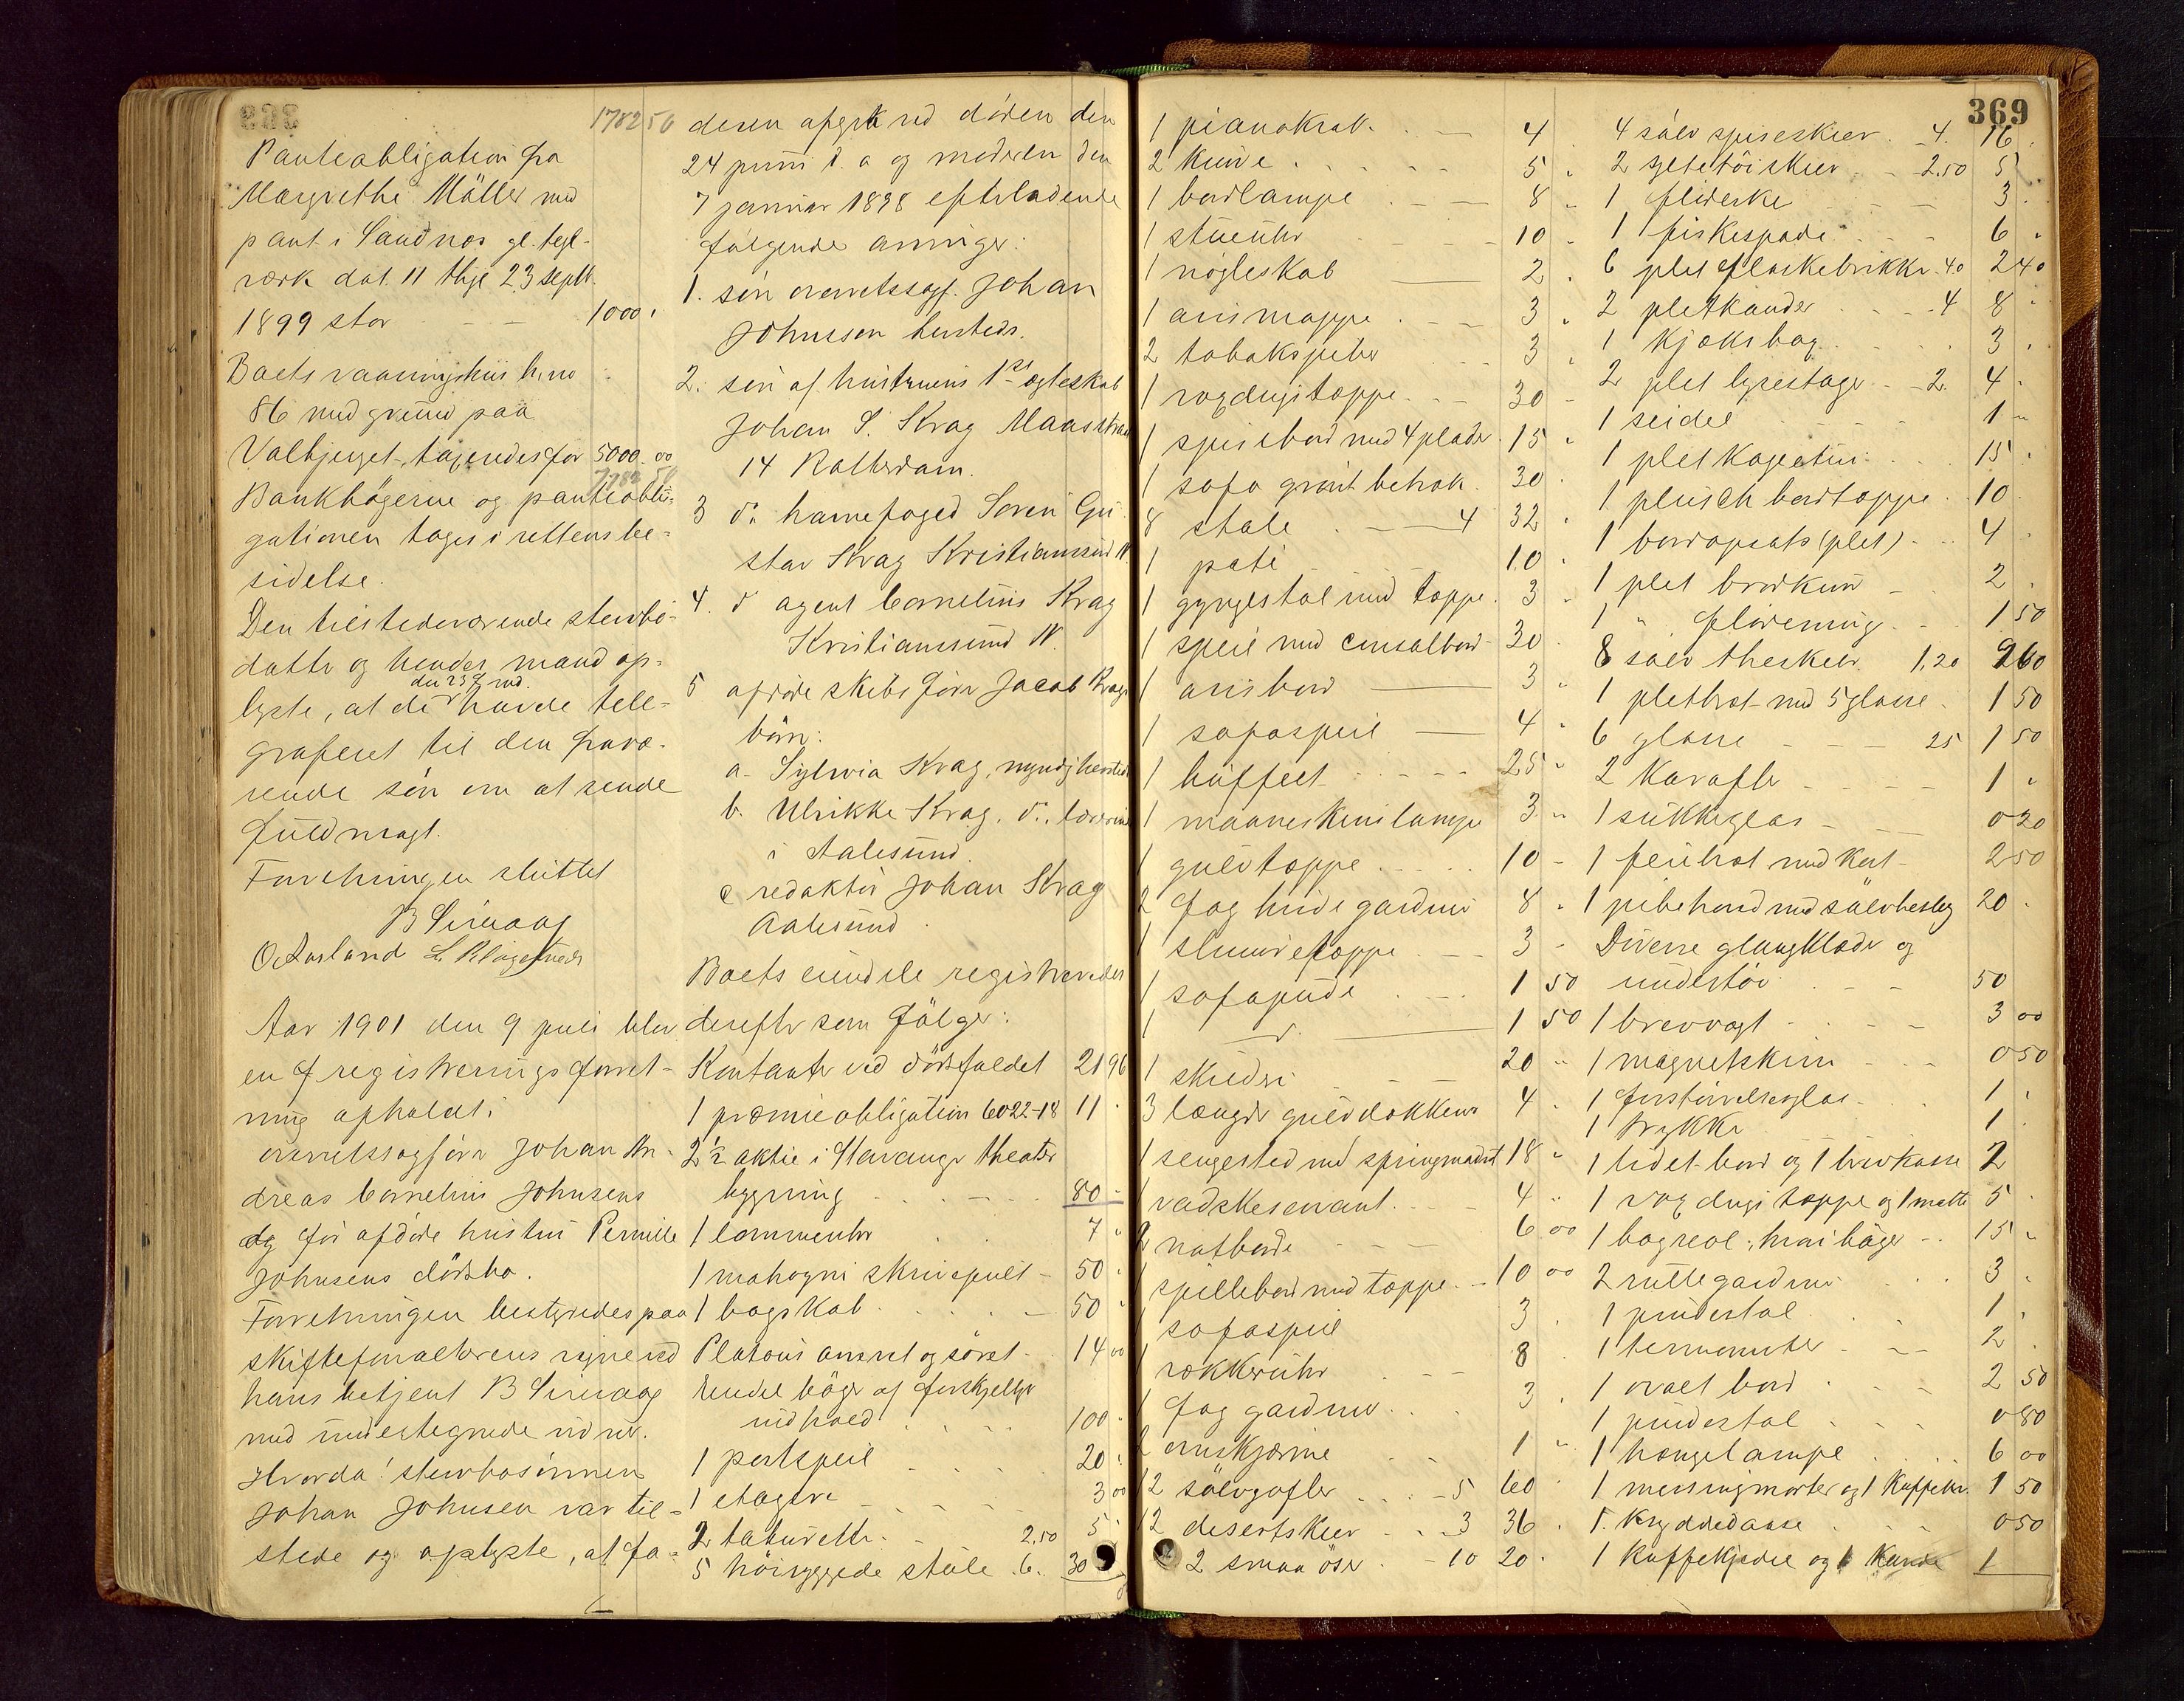 1782 50
Panteobligation fra
Margrethe Möller med
pant i Sandnæs gl. tegl-
værk dat. 11 thgl. 23 septb.
1899 stor - - 1000 "
Boets vaaningshus h. no
86 med grund paa
Valbjerget, taxeredes for 5000.00
7782 50
Bankbögerne og panteobli-
gationen toges i rettens be-
sidelse.
Den tilstedeværende stervbo-
datter og hendes mand op-
den 23 ds
lyste, at de havde tele-
graferet til den fravæ-
rende sön om at sende
fuldmagt.
Forretningen sluttet
B Sirevaag
O. Aarland L. Klingsheim
Aar 1901 den 9 juli blev
en registreringsforret-
ning afholdt i
overretssagförer Johan An-
dreas Cornelius Johnsens
og för afdöde hustru Pernille
Johnsens dödsbo.
Forretningen bestyredes paa
skifteforvalterens vegne ved
hans betjent B Sirevaag
med undertegnede vidner.
Hvorda! stervbosönnen
Johan Johnsen var til-
stede og oplyste, at fa-
deren afgik ved döden den
24 juni d. a. og moderen den
7 januar 1898 efterladende
fölgende arvinger:
1. sön overretssagf. Johan
Johnsen hersteds.
2. sön af hustruens 1ste ægteskab
Johan S. Krag Maasstraat
14 Rotterdam.
3 do havnefoged Sören Gu-
stav Krag Kristianssund N.
4. do agent Cornelius Krag
Kristianssund N.
5 afdöde skibsförer Jacob Krags
börn:
a. Sylvia Krag, myndig hersteds
b. Ulrikke Krag, do, lærerinde
i Aalesund.
c redaktör Johan Krag
Aalesund.
Boets eiendele registreredes
derefter som fölger:
Kontanter ved dödsfaldet 21 96
1 præmieobligation 6022-18 11 "
2 1/2 aktie i Stavanger theater
bygning - - - 80 -
1 lommeuhr 7 "
1 mahogni skrivepult - 50 "
1 bogskab - 50 "
Platous anret og söret - 14 00
Endel böger af forskjelligt
indhold 100 "
1 portspeil - 20 "
1 etagere - 3 00
2 taburetter - 2,50 5 "
5 höiryggede stole 6. 30
369
1 pianokrak - 4
2 kurve 5 "
1 bordlampe 8 "
1 stueuhr 10 -
1 nögleskab 2 "
1 avismappe 3 "
2 tobakspiber 3 "
1 voxdugstæppe 30 -
1 spisebord med 4 plader 15 "
1 sofa grönt betræk 30 "
8 stole - 4 32 "
1 pate 10 "
1 gyngestol med tæppe 3 "
1 speil med consolbord 30 "
1 avisbord - 3 "
1 sofaspeil - 4 "
1 buffeet - 25 "
1 maaneskinslampe 3 "
1 gulvtæppe 10 -
2 fag hvide gardiner 8 "
1 slumretæppe 3 -
1 sofapude 1 50
1 do - 1 50
1 skilderi 20 "
3 længder gulvdækken 4 "
1 sengested med springmadrat 18 "
1 vadskeservant 4 "
2 natborde 6 00
1 spillebord med tæppe 10 00
1 sofaspeil 3 "
1 vækkeruhr 8
1 fag gardiner 3 "
2 ovnskjærme 1 "
12 sölvgafler - 5 60
12 desertskeer - 3 36 "
2 smaa öser - 10 20 "
4 sölv spiseskeer 4. 16 "
2 syltetöiskeer 2.50 5
1 flödeske - 3 "
1 fiskespade 6 "
6 plet flaskebrikker 40 2 40
2 pletkander - 4 8 "
1 kjæksbæg 3 "
2 plet lysestager - 2 4 "
1 seidel 1 "
1 plet kagestui 15 "
1 plusch bordtæppe 10
1 bordopsats (plet) 4
1 plet brödkurv 2 "
1 " flöremug 1 50
8 sölv theskeer 1,20 9 60
1 pletbræt med 5 glasse 1 50
6 glasse - 25 1 50
2 karafler 1 "
1 sukkerglas - 0 20
1 feiebræt med kost 2 50
1 pibehoved med sölvbeslag 20 "
Diverse gangklæder og
undertöi - - 50
1 brevvægt 3 00
1 magnetskrin 0 50
1 forstörrelsesglas 1 "
1 krykke 1 "
1 lidet bord og 1 brevkasse 2
1 voxdugs tæppe og 1 matte 5 "
1 bogreol, hvori böger 15 "
2 rullegardiner 3 "
1 pindestol 1 "
1 termometer 2
1 ovalt bord 2 50
1 pindestol 0 80
1 hængelampe 6 00
1 messingmorter og 1 kaffekv. 1 50
1. kryddedaase 0 50
1 kaffekjedel og 1 kande 1